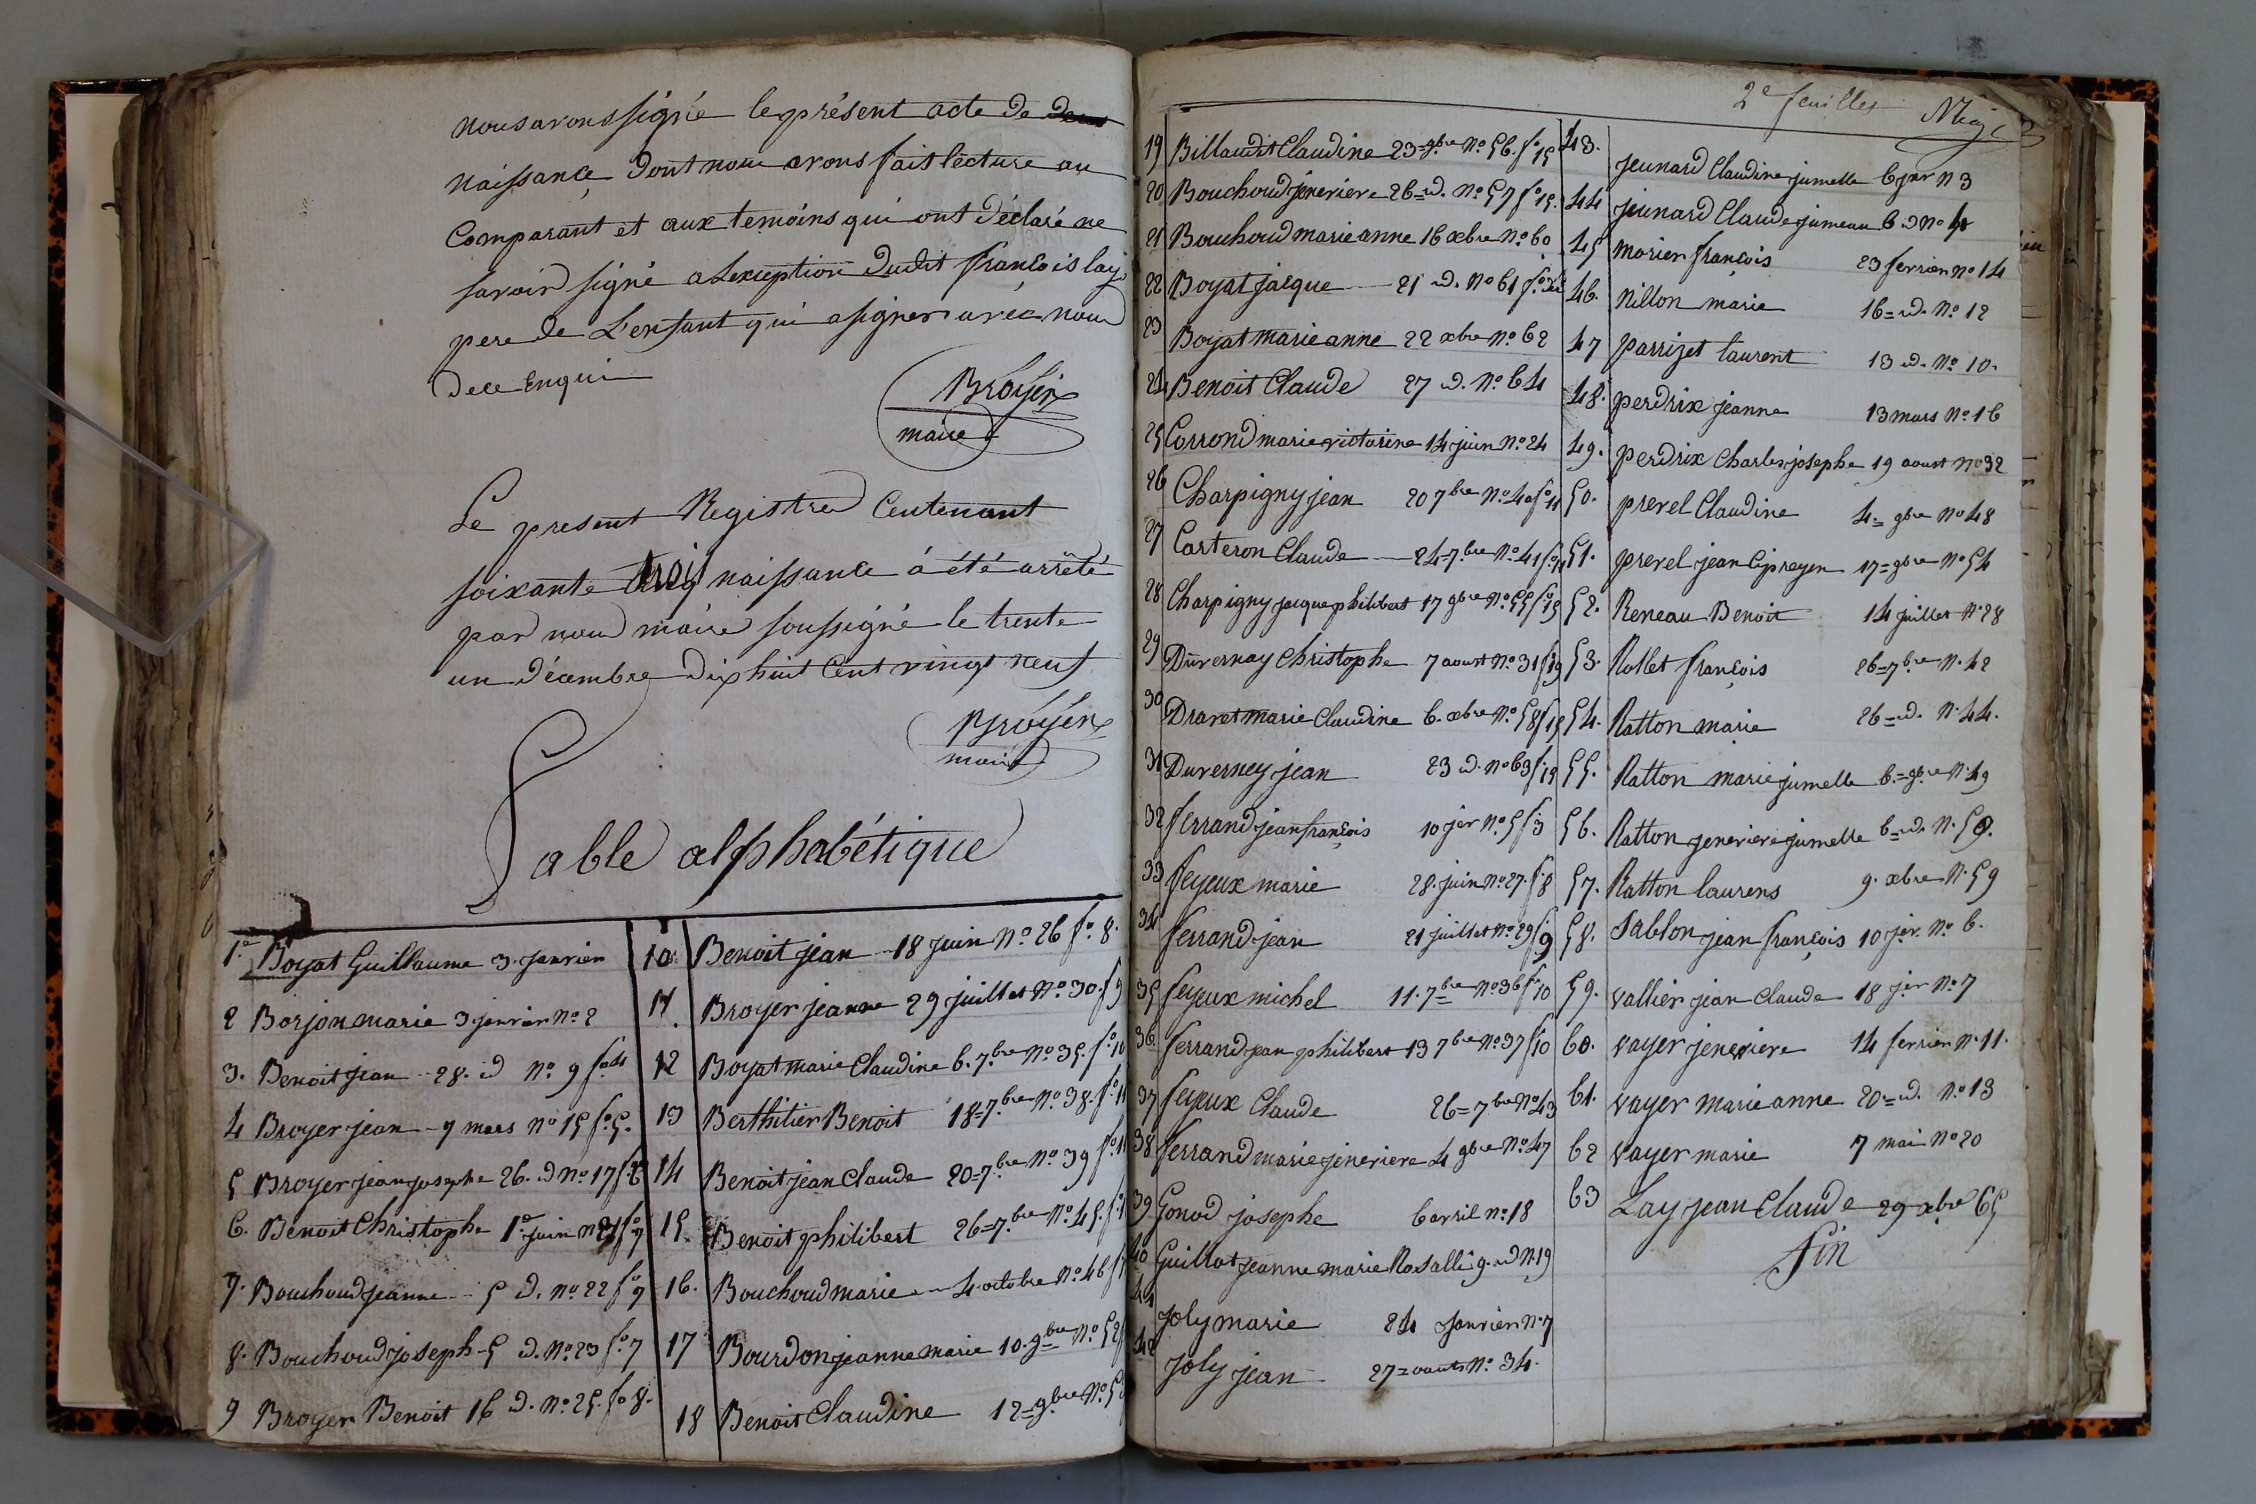 nous avons signé le présent acte de
naissance dont nous avons fait lecture au
Comparant et aux temoins qui ont déclaré ne
savoir signé a Lexception dudit françois lay
pere de L'enfant qui a signer avec nous
de ce Enquis
Broyer
maire
Le present Registre Contenant
soixante trois naissance à été arrêté
par nous maire soussigné le trente
un décembre dix huit Cent vingt neuf
Broyer
maire
Table alphabétique
1.º Boyat Guillaume 3. Janvier
2 Borjon marie 3 janvier nº 2
3. Benoit jean 28. d nº 9 fº 4
4 Broyer jean 7 mars nº 15 fº 5.
5 Broyer jean josephe 26. d Nº 17 fº 6
6. Benoit Christophe 1.º juin nº 21 fº 7
7. Bouchoud jeanne 5 d. nº 22 fº 7
8. Bouchoud joseph 5 d. Nº 23 fº 7
9 Broyer Benoit 16 d. Nº 25. fº 8.
10 Benoit jean 18 juin Nº 26 fº 8.
11. Broyer jeanne 29 juillet Nº 30. f 9
12 Boyat marie Claudine 6. 7.bre Nº 35. fº 10
13 Berthilier Benoit 18=7.bre Nº 38. fº 11
14 Benoit jean Claude 20=7.bre Nº 39 fº 11
15. Benoit philibert 26=7.bre Nº 45. f
16. Bouchoud marie 4. octobre Nº 46 f
17 Bourdon jeanne marie 10. 9bre Nº 52
18 Benoit Claudine 12=9bre Nº
2e feuilles
19 Billaudit Claudine 23=9bre Nº 56. fº 15
20 Bouchoud jenevieve 26=d. Nº 57 fº 15.
21 Bouchoud marie anne 16 xbre Nº 60
22 Boyat jacque 21 d. Nº 61 fº
23 Boyat marie anne 22 xbre Nº 62
24 Benoit Claude 27 d. Nº 64
25 Corrond marie victorine 14 juin Nº 24
26 Charpigny jean 20 7bre Nº 40 fº 11
27 Carteron Claude 24=7.bre Nº 41 fº 11
28 Charpigny jacque philibert 17 9bre Nº 55 fº 15
29 Duvernay Christophe 7 aoust Nº 31 f 9
30 Dravet marie Claudine 6. xbre Nº 58 f 15
31 Duverney jean 23 d. Nº 63 f 19
32 ferrand jean françois 10 jer Nº 5 f 3
33 feyeux marie 28. juin Nº 27. f 8
34 ferrand jean 21 juillet Nº 29 f 9
35 feyeux michel 11. 7bre Nº 36 f 10
36 ferrand jean philibert 13 7bre Nº 37 f 10
37 feyeux Claude 26=7bre Nº 43
38 ferrand marie jenevieve 4 9bre Nº 47
39 Gonod josephe 6 avril nº 18
40 Guillot jeanne marie Rosalli 9. d N. 19
41 Joly marie 24 Janvier N. 7
42 Joly jean 27= aout Nº 34.
43. jeunard Claudine jumelle 6 jer N 3
44 jeunard Claude jumeau 6 d Nº 4
45 morier françois 23 fevrier nº 14
46. Nillon marie 16=d. Nº 12
47 parrizet laurent 13 d. Nº 10.
48. perdrix jeanne 13 mars Nº 16
49. perdrix Charles josephe 19 aoust Nº 32
50. prevel Claudine 4= 9bre Nº 48
51. prevel jean Cipreyen 17=9bre Nº 54
52. Reneau Benoit 14 juillet Nº 28
53. Rollet françois 26=7bre N. 42
54. Ratton marie 26=d. N. 44.
55. Ratton marie jumelle 6.=9bre N. 49
56. Ratton jenevieve jumelle 6=d. N. 50.
57. Ratton laurens 9. xbre N. 59
58. Sablon jean françois 10 jer. Nº 6.
59. vallier jean Claude 18 jer Nº 7
60. vayer jenevieve 14 fevrier N. 11.
61. vayer marie anne 20.=d. Nº 13
62 vayer marie 7 mai Nº 20
63 Lay jean Claude 29 xbre 65
fin